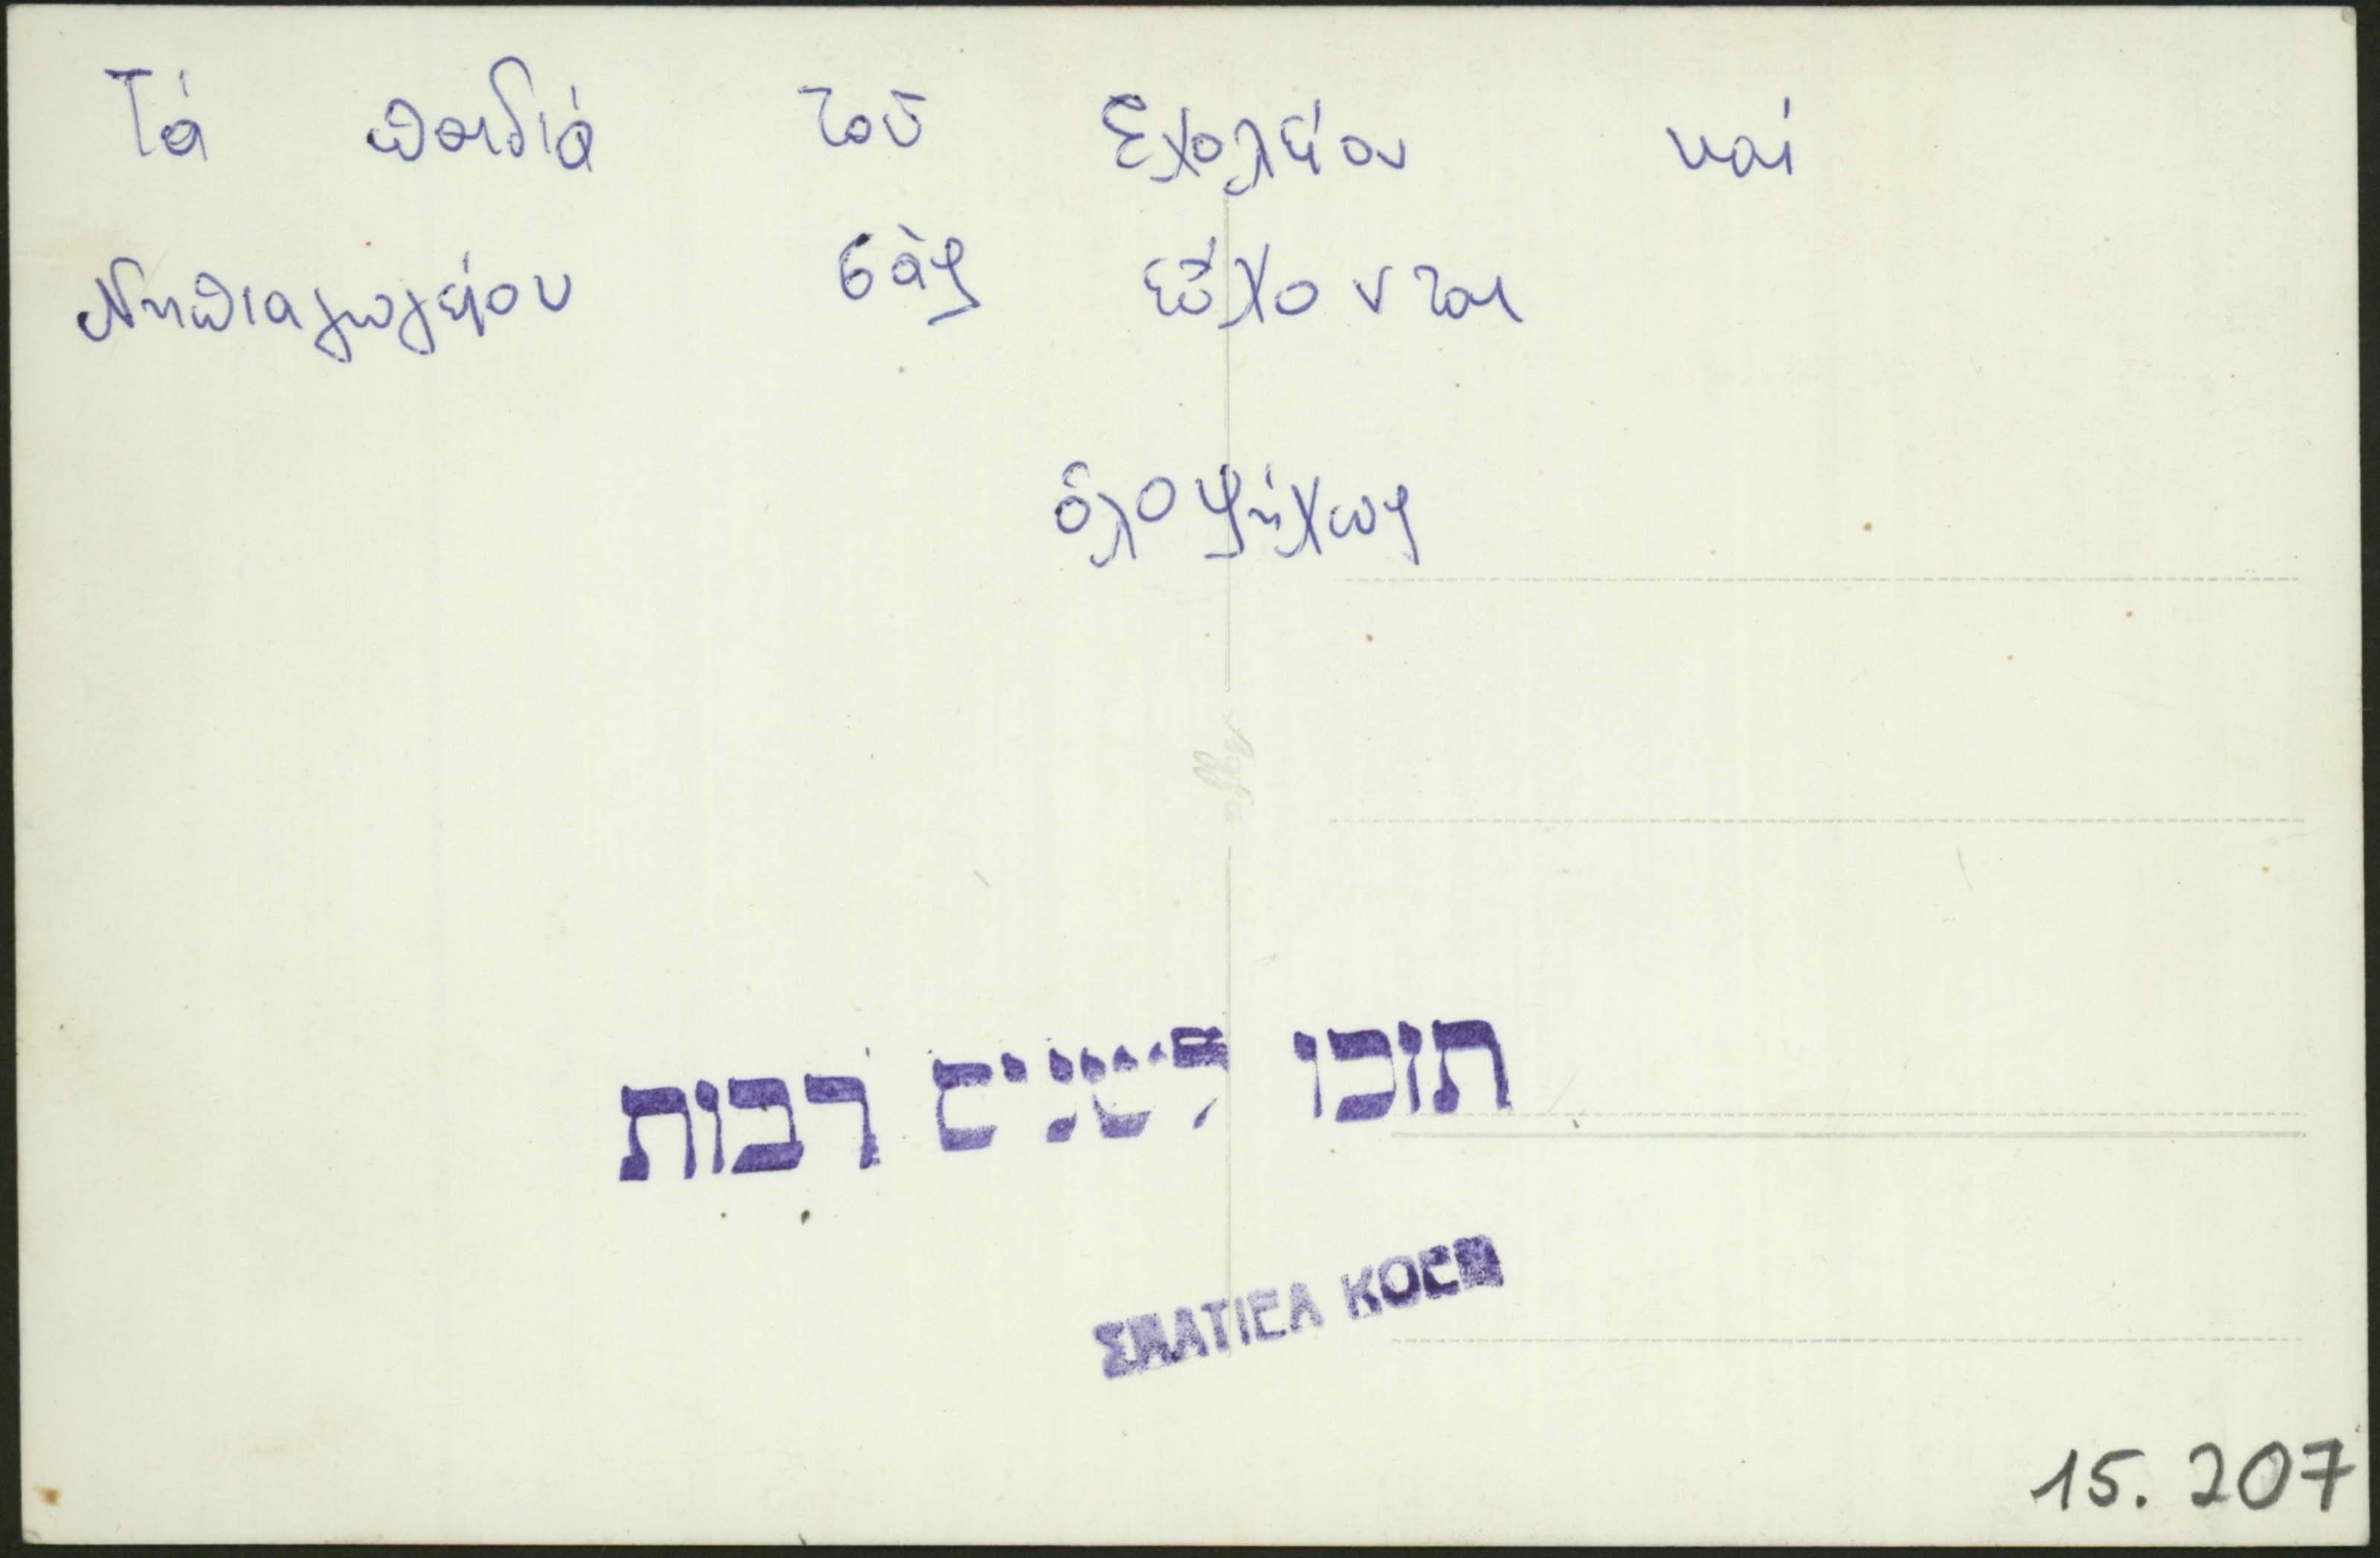 Τά παιδιά τοῦ Σχολείου καί
Νηπιαγωγείου σᾶς εὔχονται
ὁλοψύχως
תזכו לשנים רבות
ΣΑΛΤΙΕΛ ΚΟΕΝ
15.207